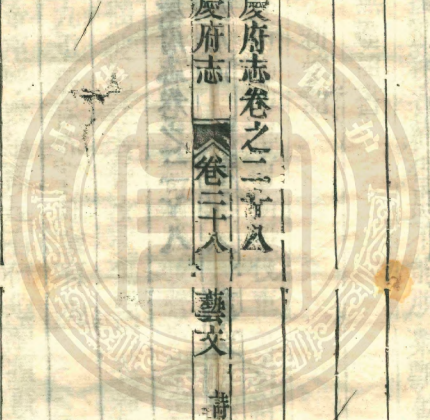 慶府志卷之二十八
慶府志 卷二十八 藝文 詩